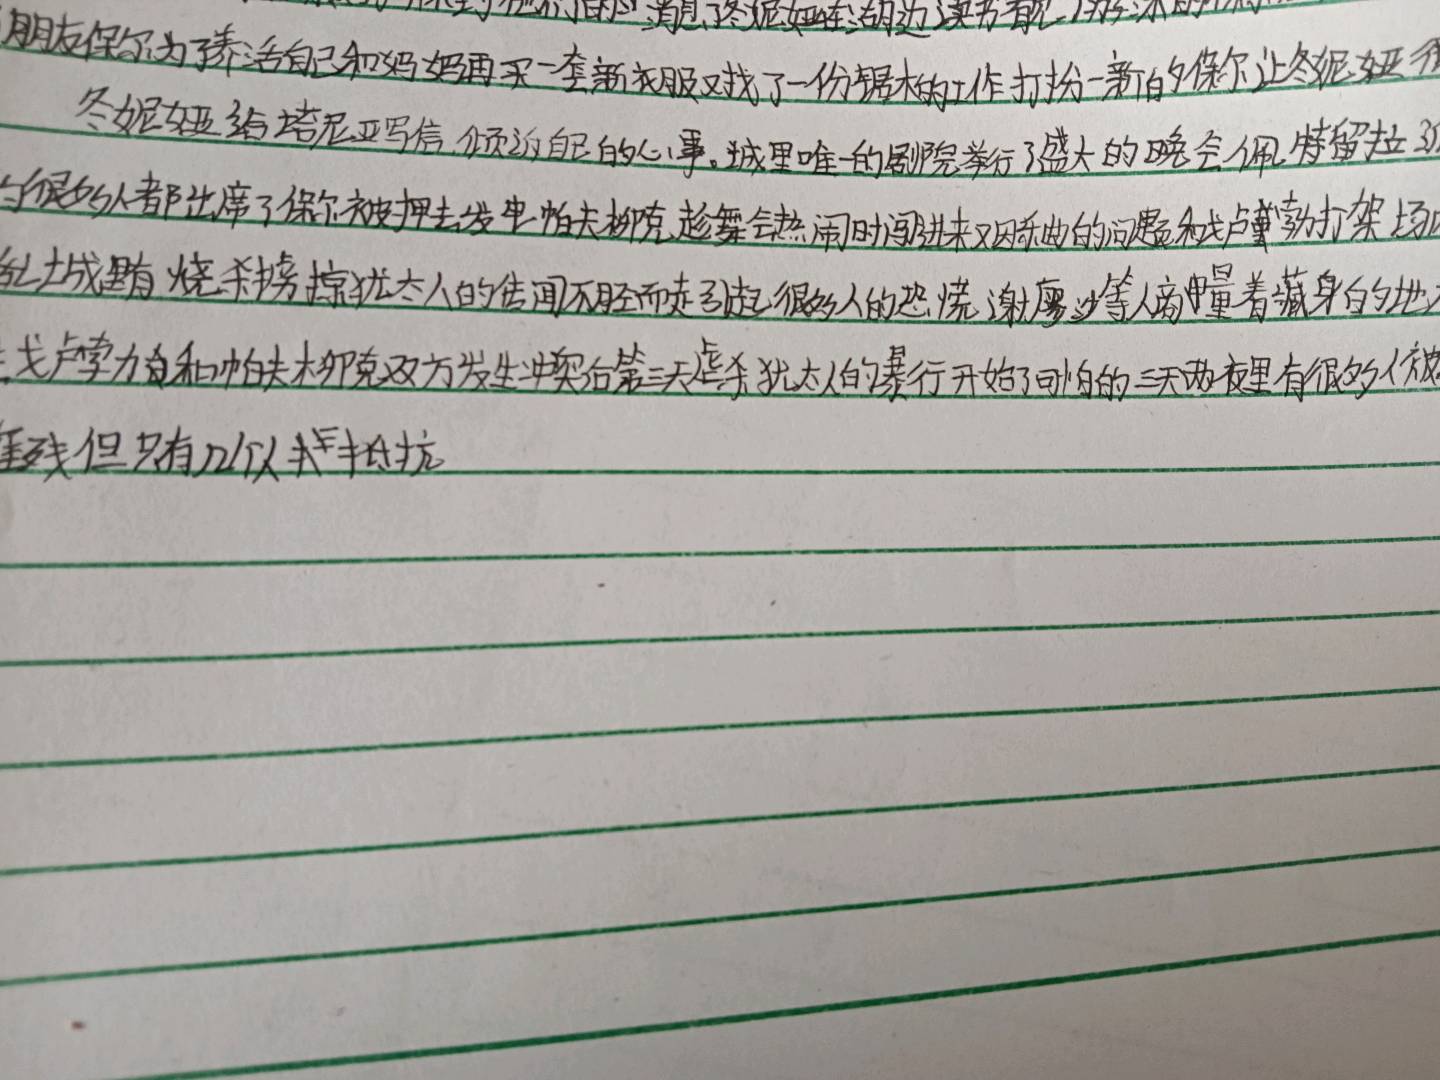 消息,冬妮娅在湖边读书看见
朋友保尔为了养活自己和妈妈再买一套新衣服又找了一份锯木的工作打扮一新的保尔让冬妮娅很
冬妮娅给塔尼亚写信,倾诉自己的心事。城里唯一的剧院举行了盛大的晚会佩特留拉
很多人都出席了保尔被押去发电帕夫柳克趁舞会热闹时闯进来又因乐曲的问题和戈卢勃打架场
乱城里有烧杀掳掠犹太人的传闻不胫而走引起很多人的恐慌谢廖沙等人商量着藏身的地
戈卢勃和帕夫柳克双方发生冲突后第三天虐杀犹太人的暴行开始了可怕的三天两夜里有很多人被
残但只有几个人拼抵抗